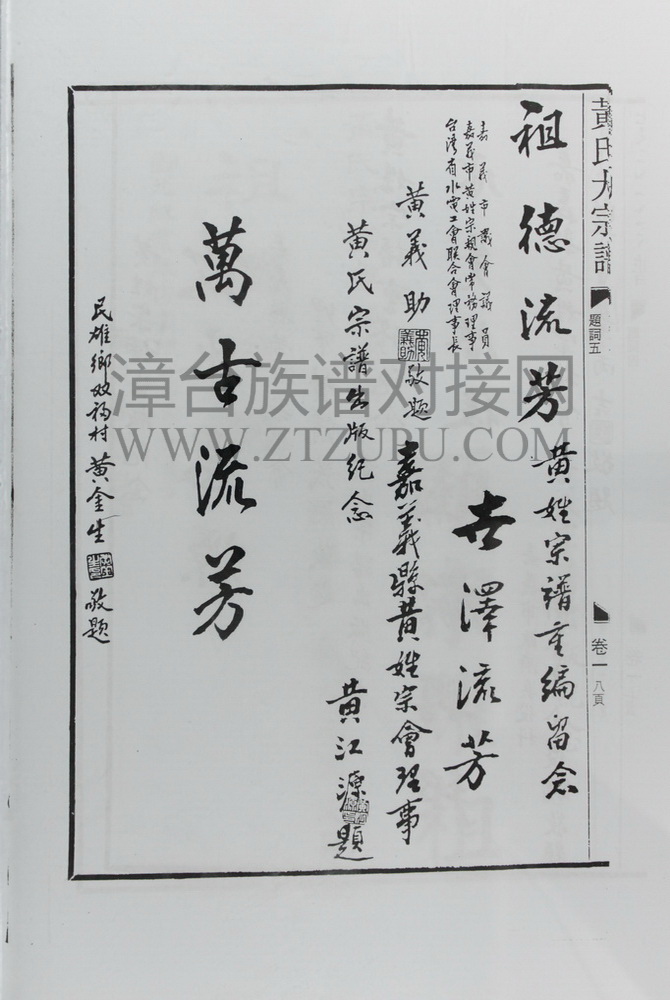 黃氏大宗譜
題詞五
卷一
八頁
祖德流芳
黄姓宗譜重編留念
嘉義市議會議員
嘉義市黄姓宗親會常務理事
台灣省水電工會聯合會理事長
黄義助
敬題
世澤流芳
嘉義縣黄姓宗會理事
黄氏宗譜出版纪念
黄江源
題
萬古流芳
民雄鄉双福村
黄金生
敬題
漳台族谱对接网
WWW.ZTZUPU.COM